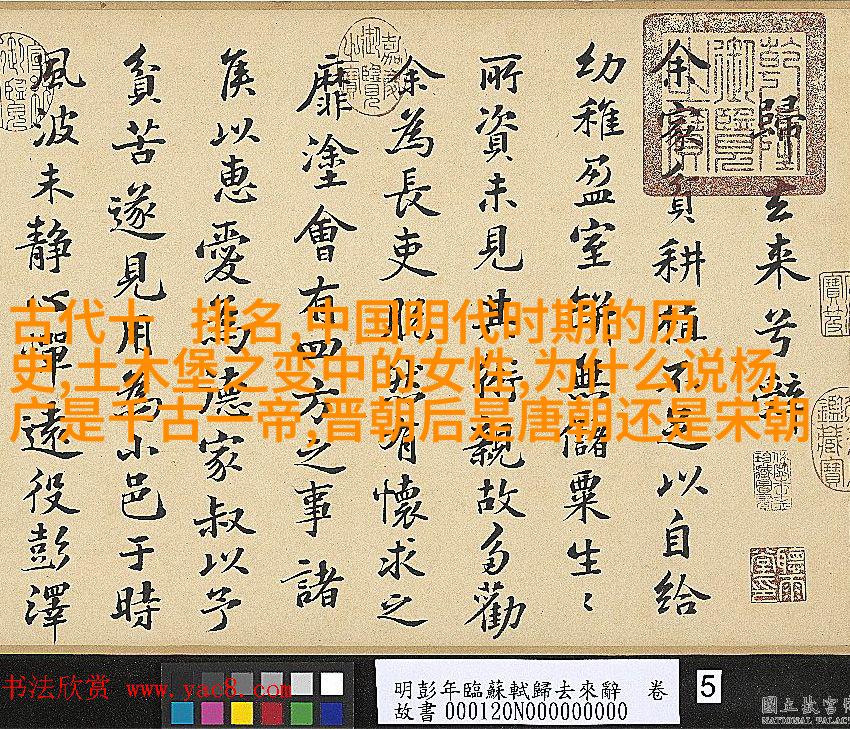 歸去來兮辭
余家貧耕植不足以自給
幼稚盈室缾無儲粟生〻
所資未見其術親故多勸
余為長吏脫然有懷求之
靡塗會有四方之事諸
矦以惠愛為德家叔以予
貧苦遂見用為小邑于時
風波未静心憚遠役彭澤
乾隆御覽之寶
嘉慶御覽之寶
古代十 排名,中国明代时期的历
史,土木堡之变中的女性,为什么说杨
广是千古一帝,晋朝后是唐朝还是宋朝
书法欣赏 www.yac8.com
明彭年臨蘇軾歸去來辭 卷
故書000120N000000000
5
國立故宮
NATIONAL PALAC